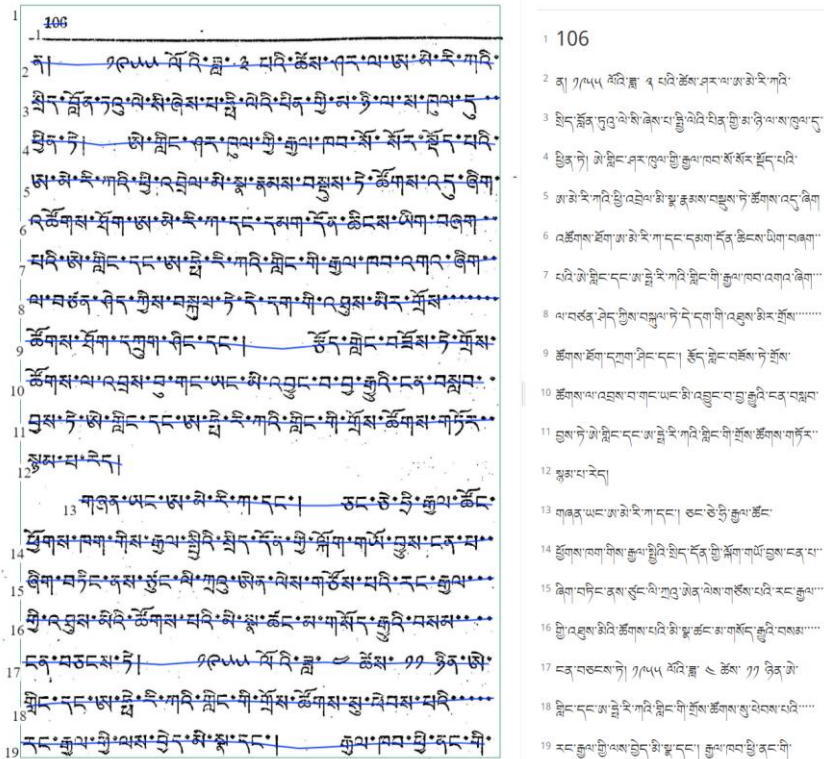 1 106
2 ན། ༡༩༥༥ ལོའི་ཟླ་ ༣ པའི་ཚེས་ཤར་ལ་ཨ་མེ་རི་ཀའི་
3 སྲིད་བློན་ཏུའུ་ལེ་སི་ཞེས་པ་ཧྥི་ལེའི་པིན་གྱི་མ་ཉི་ལ་ས་ཁུལ་དུ་
4 ཕྱིན་ཏེ། ཨེ་གླིང་ཤར་ཁུལ་གྱི་རྒྱལ་ཁབ་སོ་སོར་སྡོད་པའི་
5 ཨ་མེ་རི་ཀའི་ཕྱི་འབྲེལ་མི་སྣ་རྣམས་བསྡུས་ཏེ་ཚོགས་འདུ་ཞིག
6 འཚོགས་ཐོག་ཨ་མེ་རི་ཀ་དང་དམག་དོན་ཆིངས་ཡིག་བཞག་་
7 པའི་ཨེ་གླིང་དང་ཨ་ཧྥེ་རི་ཀའི་གླིང་གི་རྒྱལ་ཁབ་འགའ་ཞིག་་་
8 ལ་བཙན་ཤེད་ཀྱིས་བསྐུལ་ཏེ་དེ་དག་གི་འཐུས་མིར་གྲོས་་་་་་་་
9 ཚོགས་ཐོག་དཀྲུག་ཤིང་དང་། རྩོད་གླེང་བཟོས་ཏེ་གྲོས་
10 ཚོགས་ལ་འབྲས་བུ་གང་ཡང་མི་འབྱུང་བ་བྱ་རྒྱུའི་ངན་བསླབ་
11 བྱས་ཏེ་ཨེ་གླིང་དང་ཨ་ཧྥེ་རི་ཀའི་གླིང་གི་གྲོས་ཚོགས་གཏོར་་
12 སྙམ་པ་རེད།
13 གཞན་ཡང་ཨ་མེ་རི་ཀ་དང་། ཅང་ཅེ་ཧྲི་རྒྱལ་ཚོང་
14 ཕྱོགས་ཁག་གིས་རྒྱལ་སྤྱིའི་སྲིད་དོན་གྱི་ལྐོག་གཡོ་བྱུས་ངན་པ་་
15 ཞིག་བཏིང་ནས་ཙུང་ལི་ཀྲའུ་ཨེན་ལེས་གཙོས་པའི་རང་རྒྱལ་་་
16 གྱི་འཐུས་མིའི་ཚོགས་པའི་མི་སྣ་ཚང་མ་གསོད་རྒྱུའི་བསམ་་་་་
17 ངན་བཅངས་ཏེ། ༡༩༥༥ ལོའི་ཟླ་ ༤ ཚེས་ ༡༡ ཉིན་ཨེ་
18 གླིང་དང་ཨ་ཧྥེ་རི་ཀའི་གླིང་གི་གྲོས་ཚོགས་སུ་ཕེབས་པའི་་་་་
19 རང་རྒྱལ་གྱི་ལས་བྱེད་མི་སྣ་དང་། རྒྱལ་ཁབ་ཕྱི་ནང་གི་
1 106
2 ན། ༡༩༥༥ ལོའི་ཟླ་ ༣ པའི་ཚེས་ཤར་ལ་ཨ་མེ་རི་ཀའི་
3 སྲིད་བློན་ཏུའུ་ལེ་སི་ཞེས་པ་ཧྥི་ལེའི་པིན་གྱི་མ་ཉི་ལ་ས་ཁུལ་དུ་
4 ཕྱིན་ཏེ། ཨེ་གླིང་ཤར་ཁུལ་གྱི་རྒྱལ་ཁབ་སོ་སོར་སྡོད་པའི་
5 ཨ་མེ་རི་ཀའི་ཕྱི་འབྲེལ་མི་སྣ་རྣམས་བསྡུས་ཏེ་ཚོགས་འདུ་ཞིག
6 འཚོགས་ཐོག་ཨ་མེ་རི་ཀ་དང་དམག་དོན་ཆིངས་ཡིག་བཞག་་
7 པའི་ཨེ་གླིང་དང་ཨ་ཧྥེ་རི་ཀའི་གླིང་གི་རྒྱལ་ཁབ་འགའ་ཞིག་་་
8 ལ་བཙན་ཤེད་ཀྱིས་བསྐུལ་ཏེ་དེ་དག་གི་འཐུས་མིར་གྲོས་་་་་་་་
9 ཚོགས་ཐོག་དཀྲུག་ཤིང་དང་། རྩོད་གླེང་བཟོས་ཏེ་གྲོས་
10 ཚོགས་ལ་འབྲས་བ་གང་ཡང་མི་འབྱུང་བ་བྱ་རྒྱུའི་ངན་བསླབ་
11 བྱས་ཏེ་ཨེ་གླིང་དང་ཨ་ཧྥེ་རི་ཀའི་གླིང་གི་གྲོས་ཚོགས་གཏོར་་
12 སྙམ་པ་རེད།
13 གཞན་ཡང་ཨ་མེ་རི་ཀ་དང་། ཅང་ཅེ་ཧྲི་རྒྱལ་ཚོང་
14 ཕྱོགས་ཁག་གིས་རྒྱལ་སྤྱིའི་སྲིད་དོན་གྱི་ལྐོག་གཡོ་བྱས་ངན་པ་་
15 ཞིག་བཏིང་ནས་ཙུང་ལི་ཀྲའུ་ཨེན་ལེས་གཙོས་པའི་རང་རྒྱལ་་་
16 གྱི་འཐུས་མིའི་ཚོགས་པའི་མི་སྣ་ཚང་མ་གསོད་རྒྱུའི་བསམ་་་་་
17 ངན་བཅངས་ཏེ། ༡༩༥༥ ལོའི་ཟླ་ ༤ ཚེས་ ༡༡ ཉིན་ཨེ་
18 གླིང་དང་ཨ་ཧྥེ་རི་ཀའི་གླིང་གི་གྲོས་ཚོགས་སུ་ཕེབས་པའི་་་་་
19 རང་རྒྱལ་གྱི་ལས་བྱེད་མི་སྣ་དང་། རྒྱལ་ཁབ་ཕྱི་ནང་གི་